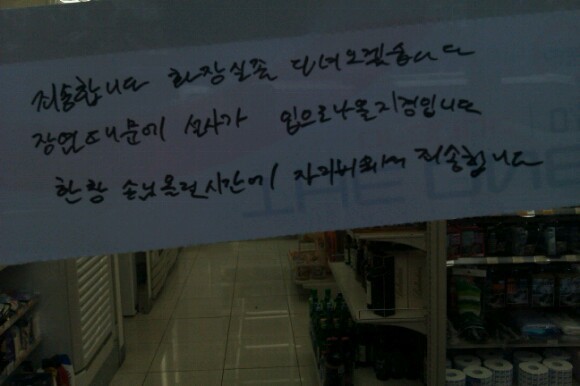 죄송합니다 화장실좀 다녀오겠습니다
장염때문에 설사가 입으로나올지경입니다
한창 손님올런시간에 자리비워서 죄송합니다
THE ONE